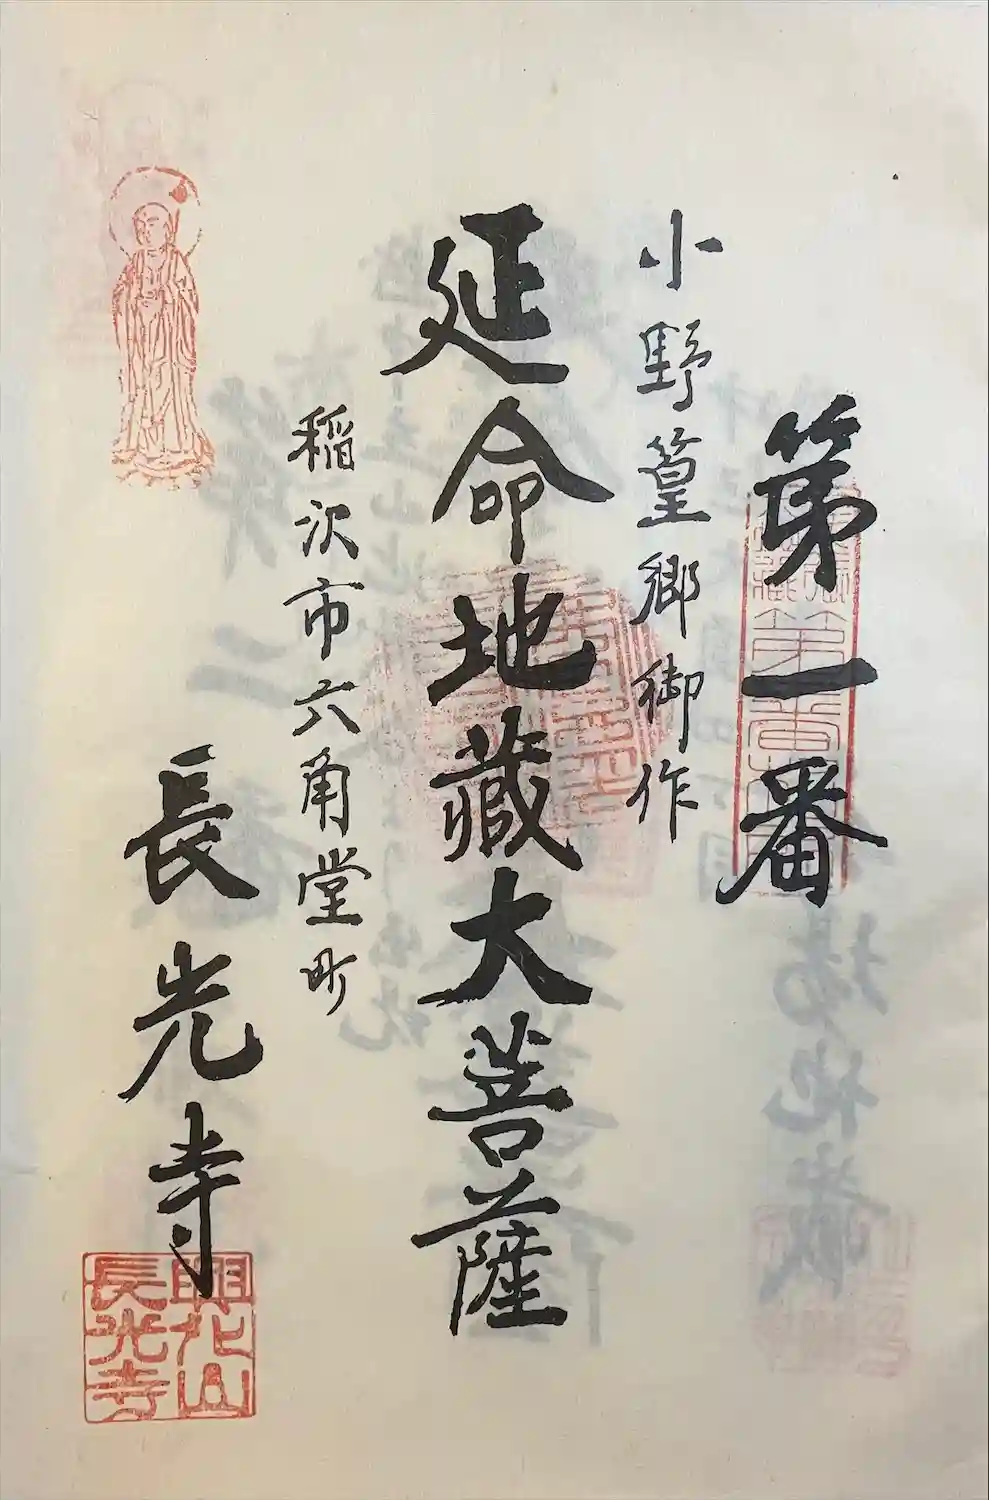 第一番
小野篁郷御作
延命地藏大菩薩
稲沢市六角堂町
長光寺
第一番
興化山
長光寺